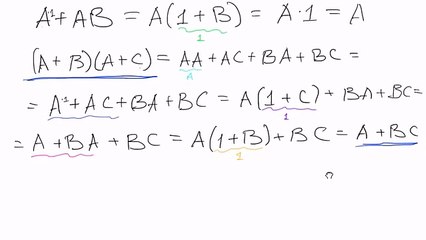 A·1 + AB = A(1 + B) = A · 1 = A
1
(A + B)(A + C) = AA + AC + BA + BC =
A
= A·1 + AC + BA + BC = A(1 + C) + BA + BC =
1
= A + BA + BC = A(1+B) + BC = A + BC
1